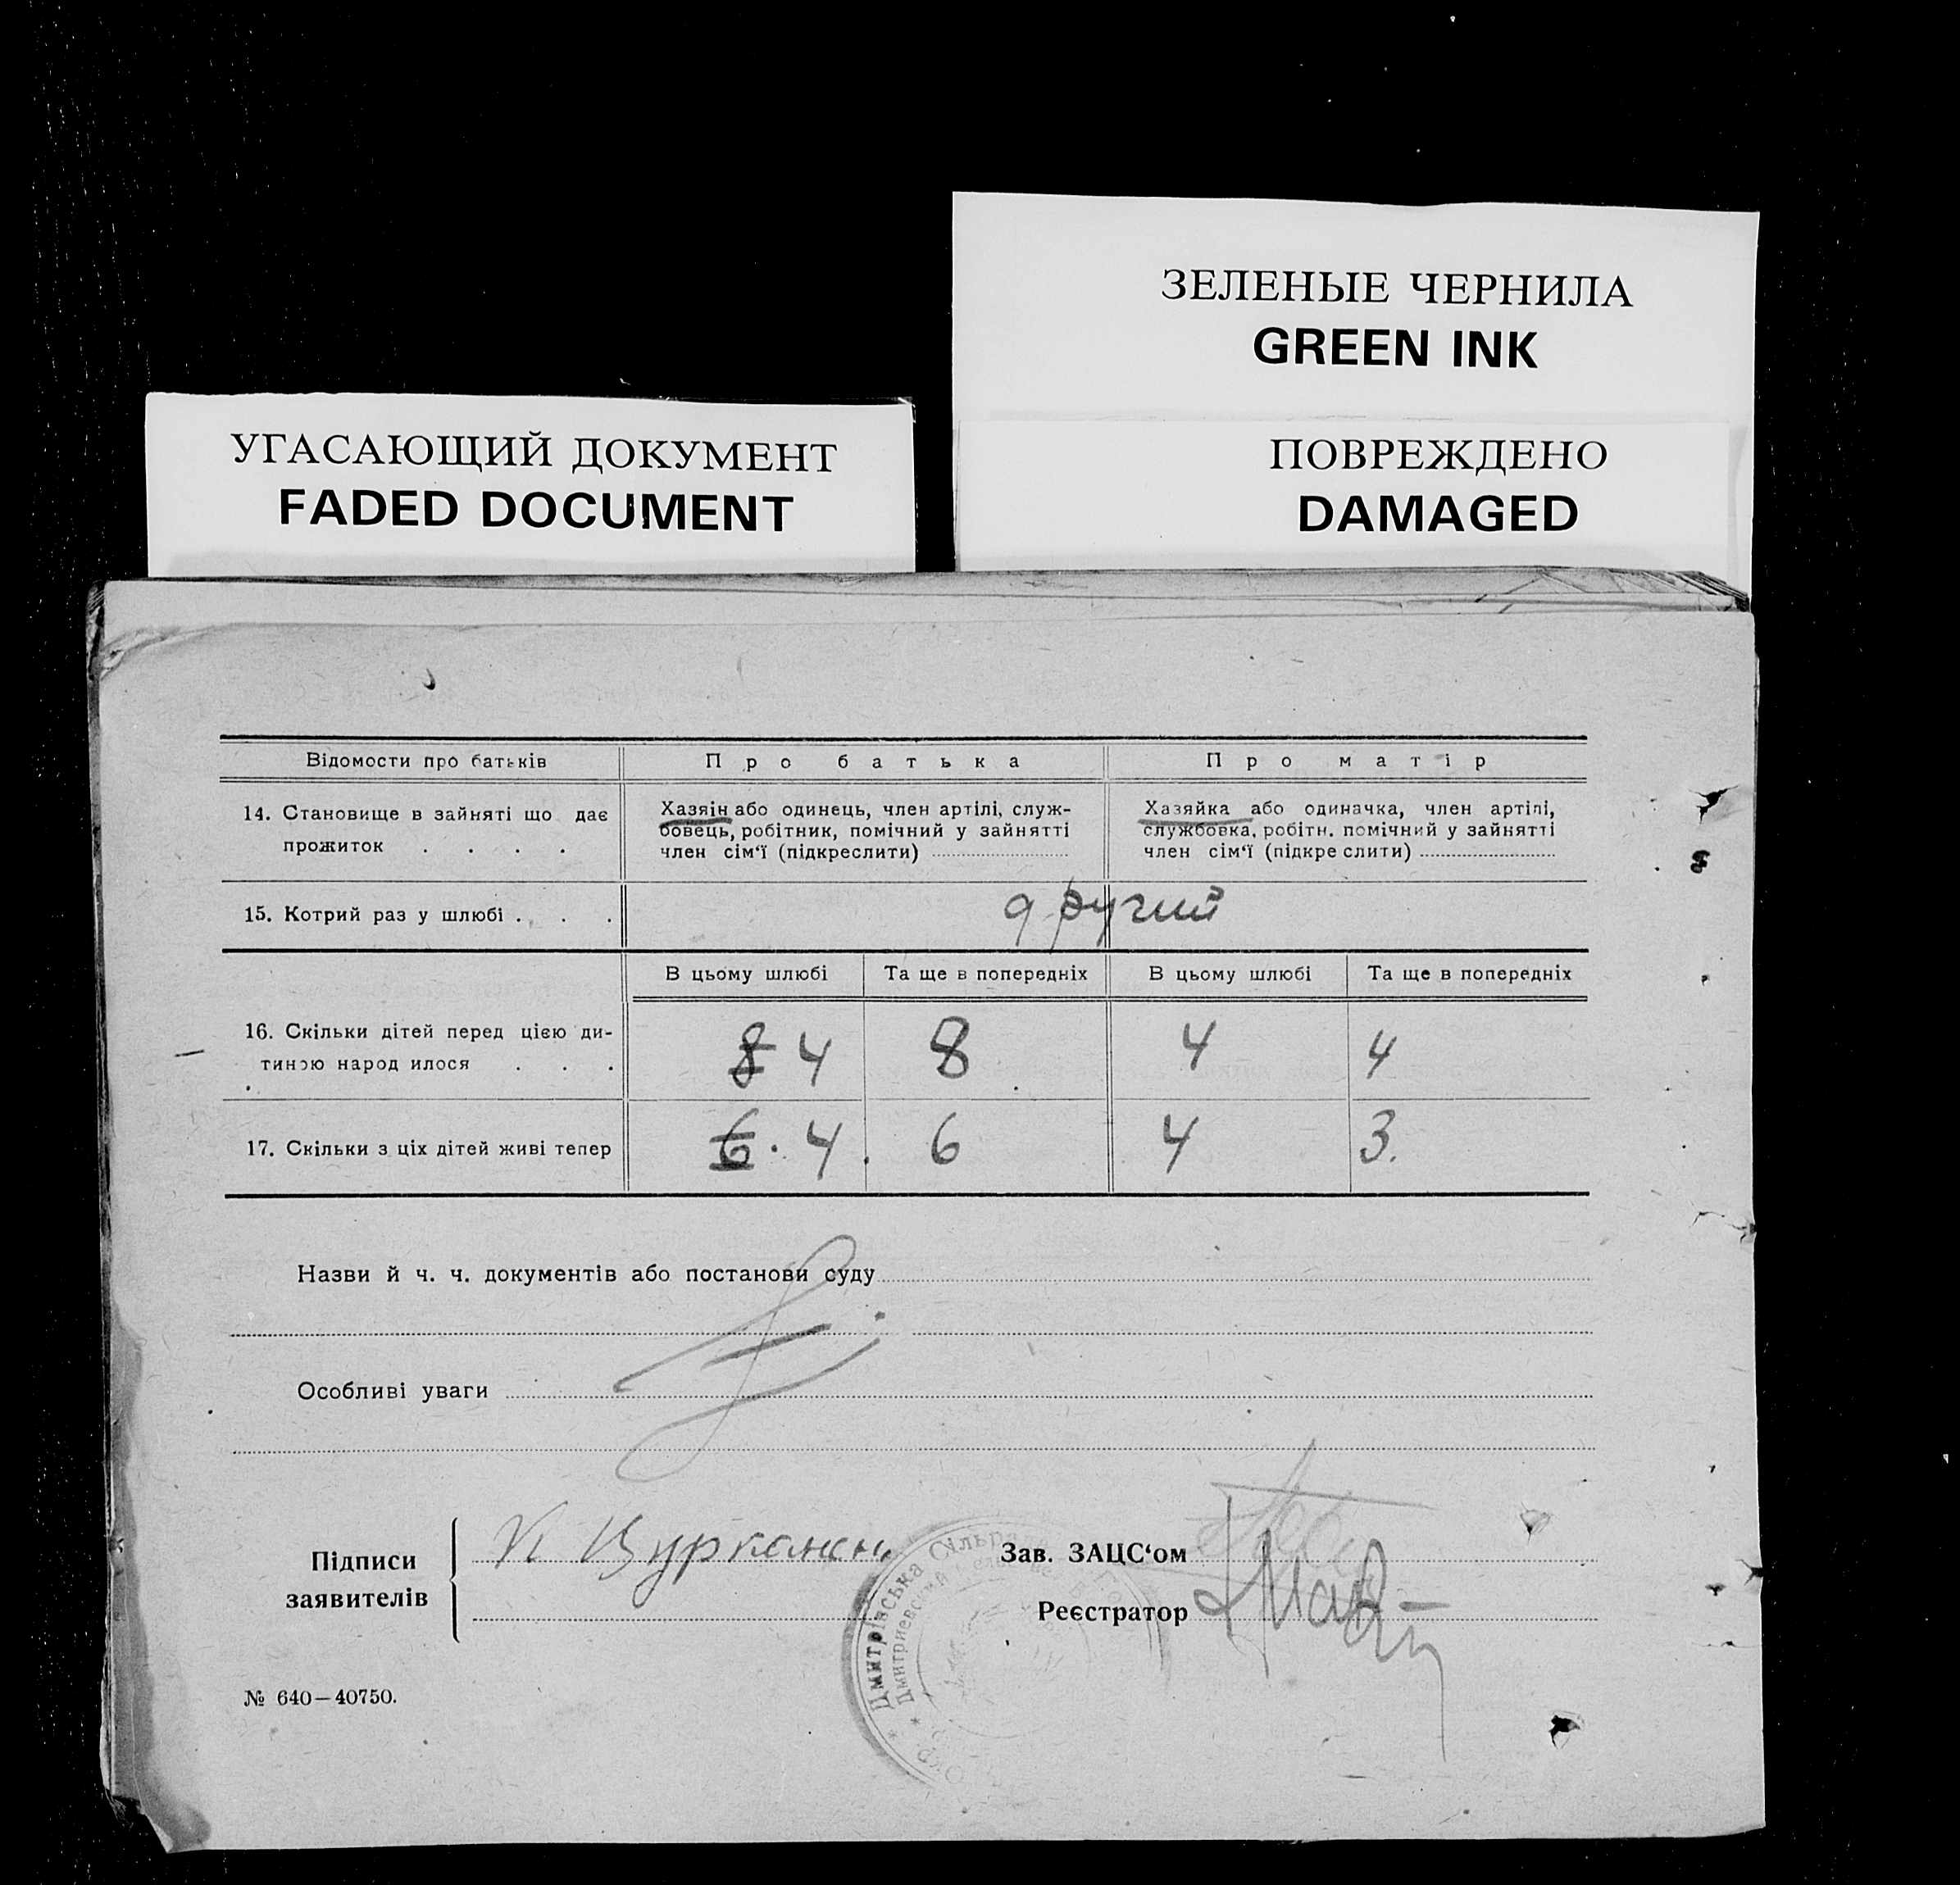 ЗЕЛЕНЫЕ ЧЕРНИЛА
GREEN INK
УГАСАЮЩИЙ ДОКУМЕНТ
FADED DOCUMENT
ПОВРЕЖДЕНО
DAMAGED
Відомости про батьків Про батька Про матір
14. Становище в зайняті що дає
прожиток . . . .
Хазяін або одинець, член артілі, служ-
бовець, робітник, помічний у зайнятті
член сім‘ї (підкреслити)
Хазяйка або одиначка, член артілі,
службовка, робітн. помічний у зайнятті
член сім‘ї (підкреслити)
15. Котрий раз у шлюбі . . . другий
В цьому шлюбі Та ще в попередніх В цьому шлюбі Та ще в попередніх
16. Скільки дітей перед цією ди-
тиною народилося . . . 8 4 8 4 4
17. Скільки з ціх дітей живі тепер 6. 4. 6 4 3.
Назви й ч. ч. документів або постанови суду
Особливі уваги
Підписи
заявителів
Зав. ЗАЦС‘ом
Реєстратор
Дмитрівська Сільрада
Дмитриевский
№ 640—40750.